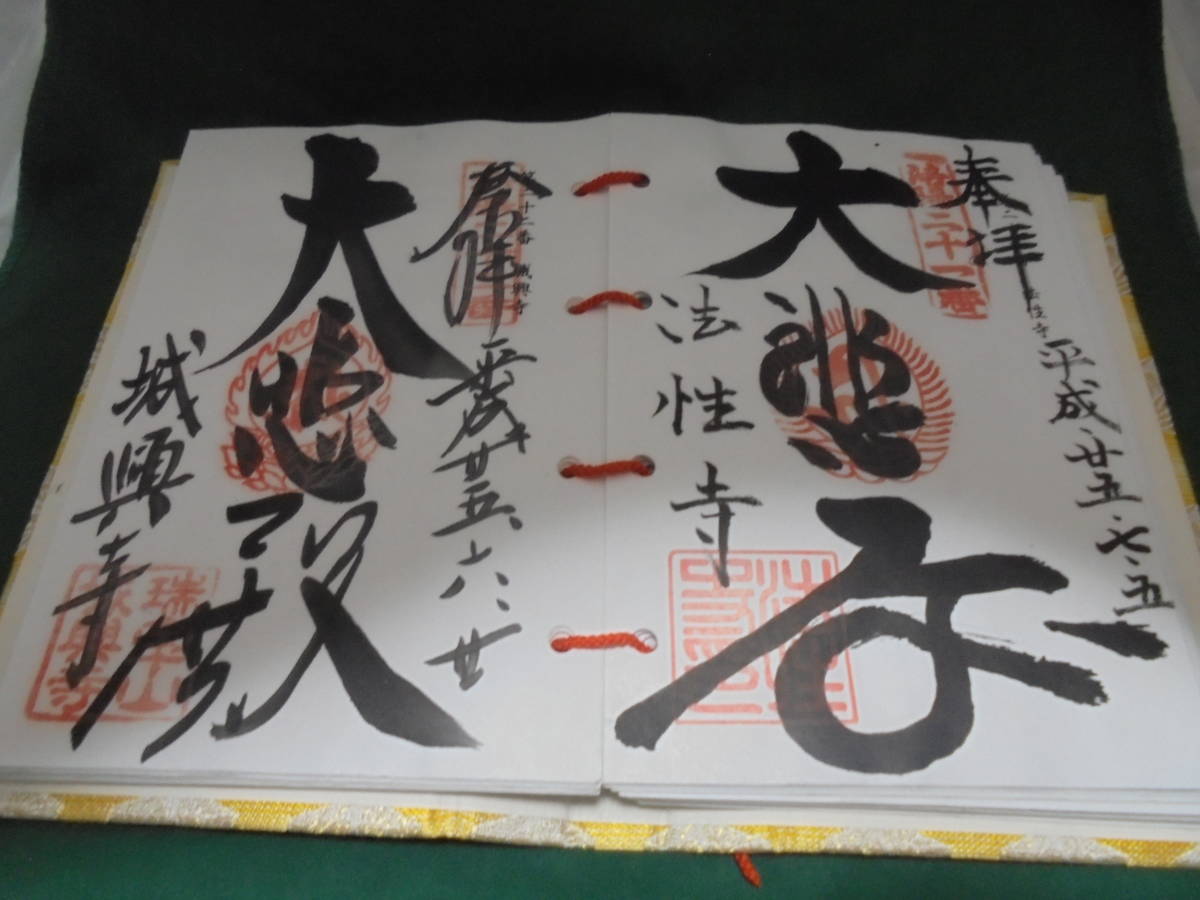 奉拝
平成廿五・七・五
大悲殿
法性寺
第二十二番 城興寺
奉拝
平成廿五、六、廿
大悲殿
城興寺